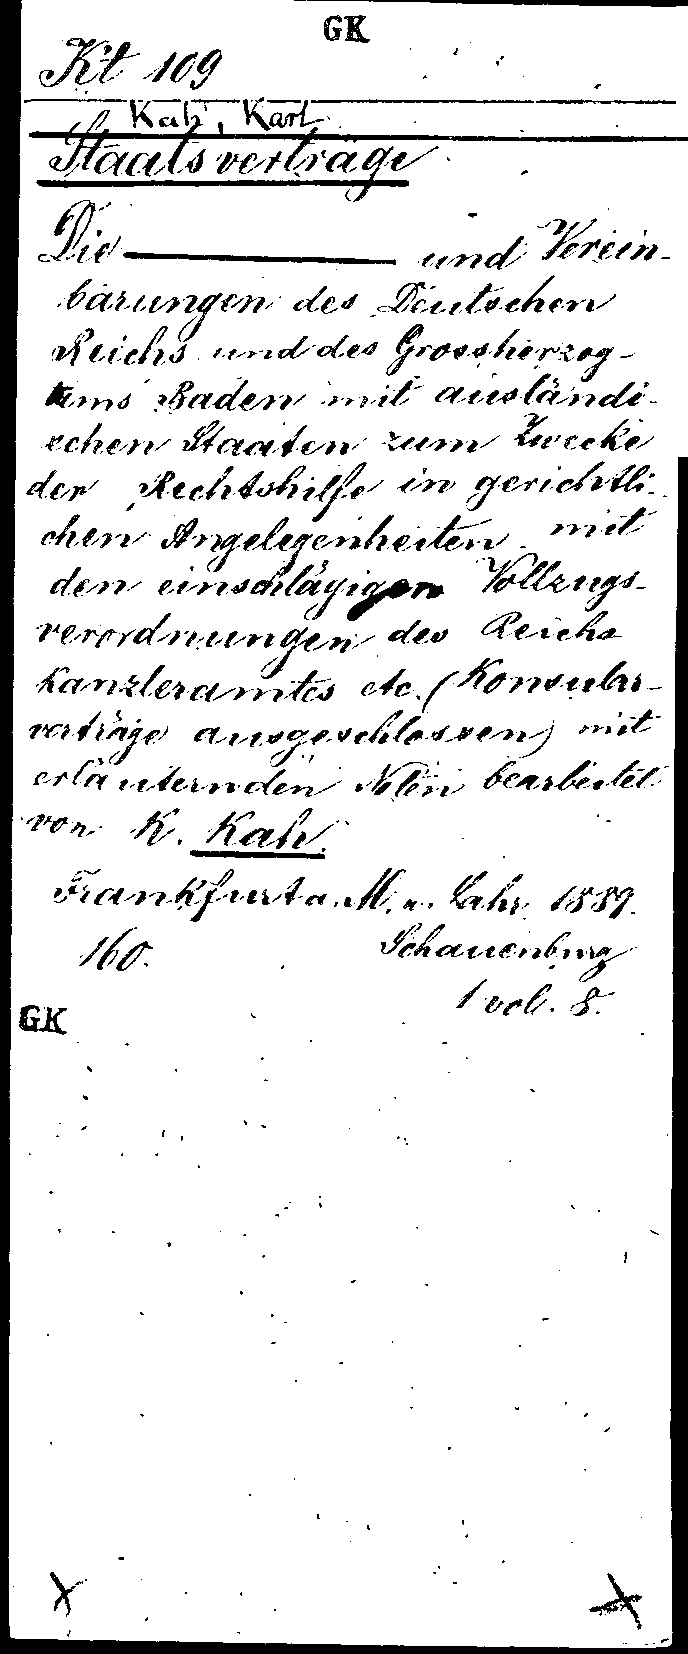 GK
Kt 109
Kah, Karl
Staatsverträge
Die ——— und Verein-
barungen des Deutschen
Reichs und des Grossherzog-
tums Baden mit ausländi-
schen Staaten zum Zwecke
der Rechtshilfe in gerichtli-
chen Angelegenheiten mit
den einschlägigen Vollzugs-
verordnungen des Reichs
kanzleramtes etc. (Konsular-
verträge ausgeschlossen) mit
erläuternden Noten bearbeitet
von K. Kah.
Frankfurt a. M. u. Lahr 1889.
160. Schauenburg
1 vol. 8.
GK